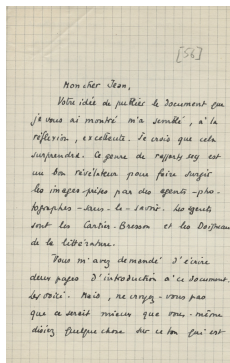 [56]
Mon cher Jean,
Votre idée de publier le document que
je vous ai montré m'a semblé, à la
réflexion, excellente. Je crois que cela
surprendra. Ce genre de rapports sey est
un bon révélateur pour faire surgir
les images prises par des agents-pho-
tographes-sans-le-savoir. Les agents
sont les Cartier-Bresson et les Doisneau
de la littérature.
Vous m'avez demandé d'écrire
deux pages d'introduction à ce document.
Les voici. Mais, ne croyez-vous pas
que ce serait mieux que vous-même
disiez quelque chose sur ce ton qui est